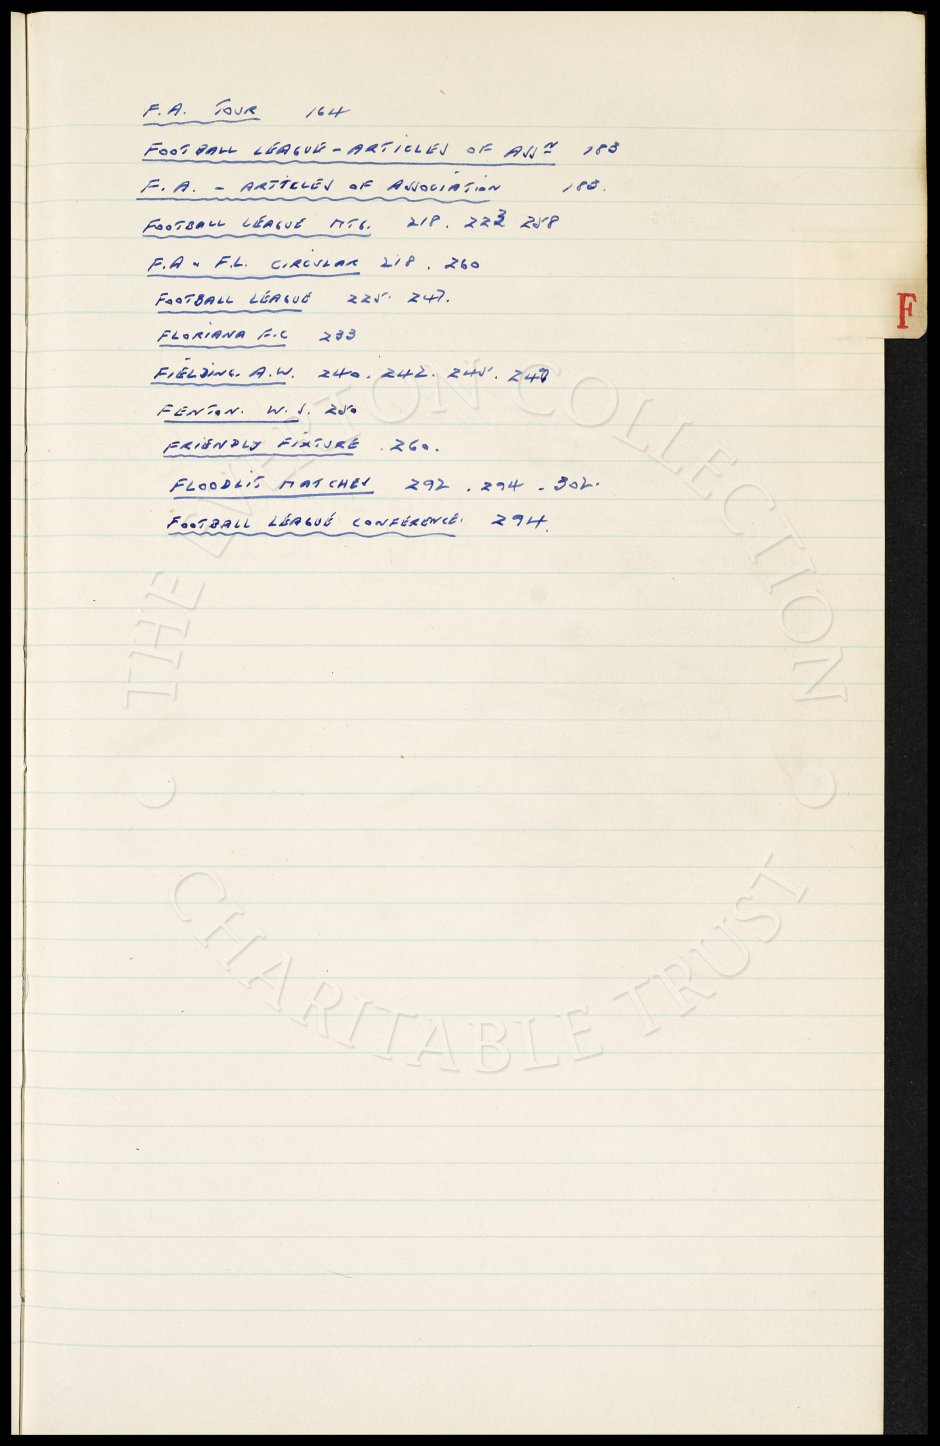 F.A. TOUR 164
FOOTBALL LEAGUE - ARTICLES OF ASSN 183
F.A. - ARTICLES OF ASSOCIATION 183.
FOOTBALL LEAGUE MTG. 218. 223 258
F.A & F.L. CIRCULAR 218. 260
FOOTBALL LEAGUE 225. 247.
F
FLORIANA F.C 233
FIELDING. A.W. 240. 242. 245. 247
FENTON. W.S. 250
FRIENDLY FIXTURE. 260.
FLOODLIT MATCHES 292. 294. 302.
FOOTBALL LEAGUE CONFERENCE. 294.
THE EVERTON COLLECTION
CHARITABLE TRUST